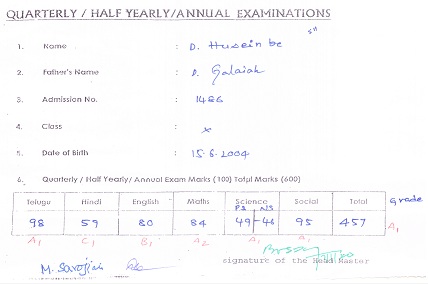 QUARTERLY / HALF YEARLY/ANNUAL EXAMINATIONS
1. Name : D. Husein be
2. Father's Name : D. Galaiah
3. Admission No. : 1486
4. Class : x
5. Date of Birth : 15-6-2004
6. Quarterly / Half Yearly/ Annual Exam Marks (100) Total Marks (600)
Telugu Hindi English Maths Science Social Total Grade
PS NS
98 59 80 84 49-46 95 457 A1
A1 C1 B1 A2 A1 A1
M. Sarojini
signature of the Head Master